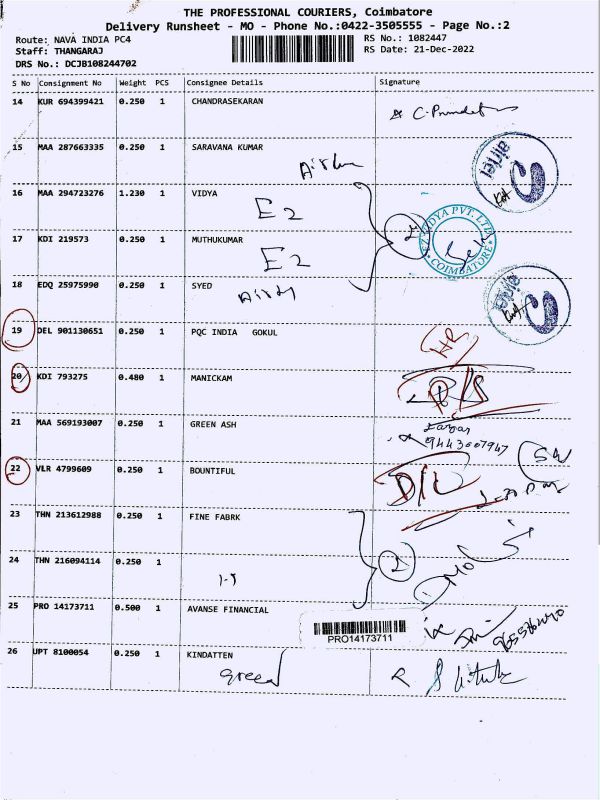 THE PROFESSIONAL COURIERS, Coimbatore
Delivery Runsheet - MO - Phone No.:0422-3505555 - Page No.:2
Route: NAVA INDIA PC4 RS No.: 1082447
Staff: THANGARAJ RS Date: 21-Dec-2022
DRS No.: DCJB108244702
S No Consignment No Weight PCS Consignee Details Signature
14 KUR 694399421 0.250 1 CHANDRASEKARAN
15 MAA 287663335 0.250 1 SARAVANA KUMAR
airtel
16 MAA 294723276 1.230 1 VIDYA
E2
17 KDI 219573 0.250 1 MUTHUKUMAR
E2
EZ VIDYA PVT. LTD.
COIMBATORE
18 EDQ 25975990 0.250 1 SYED
airtel
19 DEL 901130651 0.250 1 PQC INDIA GOKUL
20 KDI 793275 0.480 1 MANICKAM
21 MAA 569193007 0.250 1 GREEN ASH
9443607947
22 VLR 4799609 0.250 1 BOUNTIFUL
D/L
23 THN 213612988 0.250 1 FINE FABRK
24 THN 216094114 0.250 1
2
25 PRO 14173711 0.500 1 AVANSE FINANCIAL
PRO14173711
26 UPT 8100054 0.250 1 KINDATTEN
Green